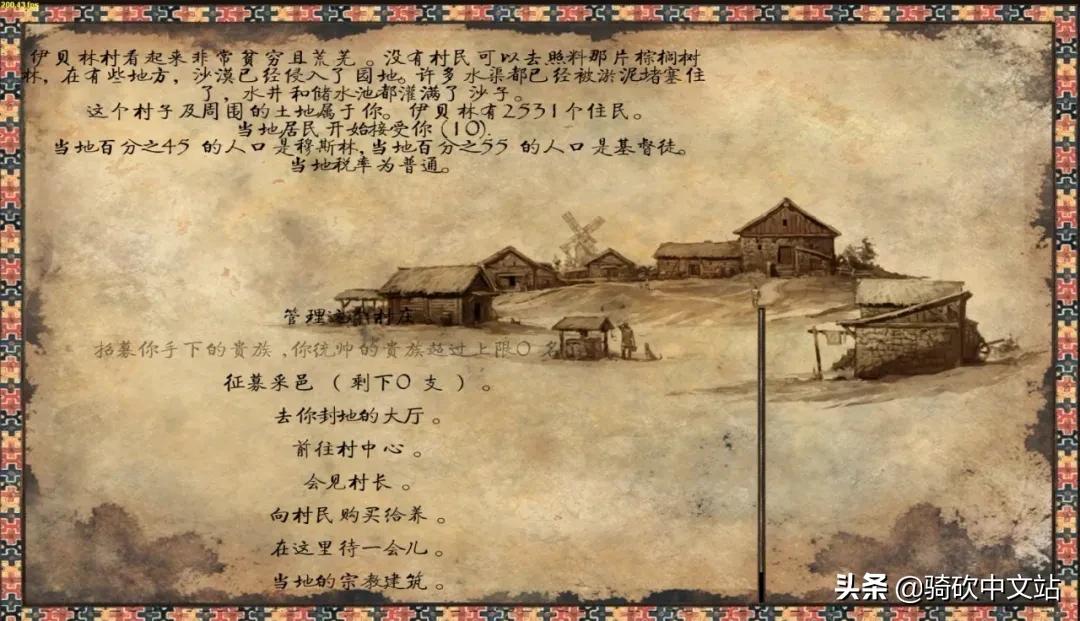 200.43 fps
伊贝林村看起来非常贫穷且荒芜。没有村民可以去照料那片棕榈树
林，在有些地方，沙漠已经侵入了园地。许多水渠都已经被淤泥堵塞住
了，水井和储水池都灌满了沙子。
这个村子及周围的土地属于你。伊贝林有2531个住民。
当地居民开始接受你(10).
当地百分之45 的人口是穆斯林,当地百分之55 的人口是基督徒。
当地税率为普通。
管理这个村庄
招募你手下的贵族,你统帅的贵族超过上限0 名
征募采邑 （剩下0 支 ）。
去你封地的大厅。
前往村中心 。
会见村长 。
向村民购买给养 。
在这里待一会儿 。
当地的宗教建筑 。
头条 @骑砍中文站